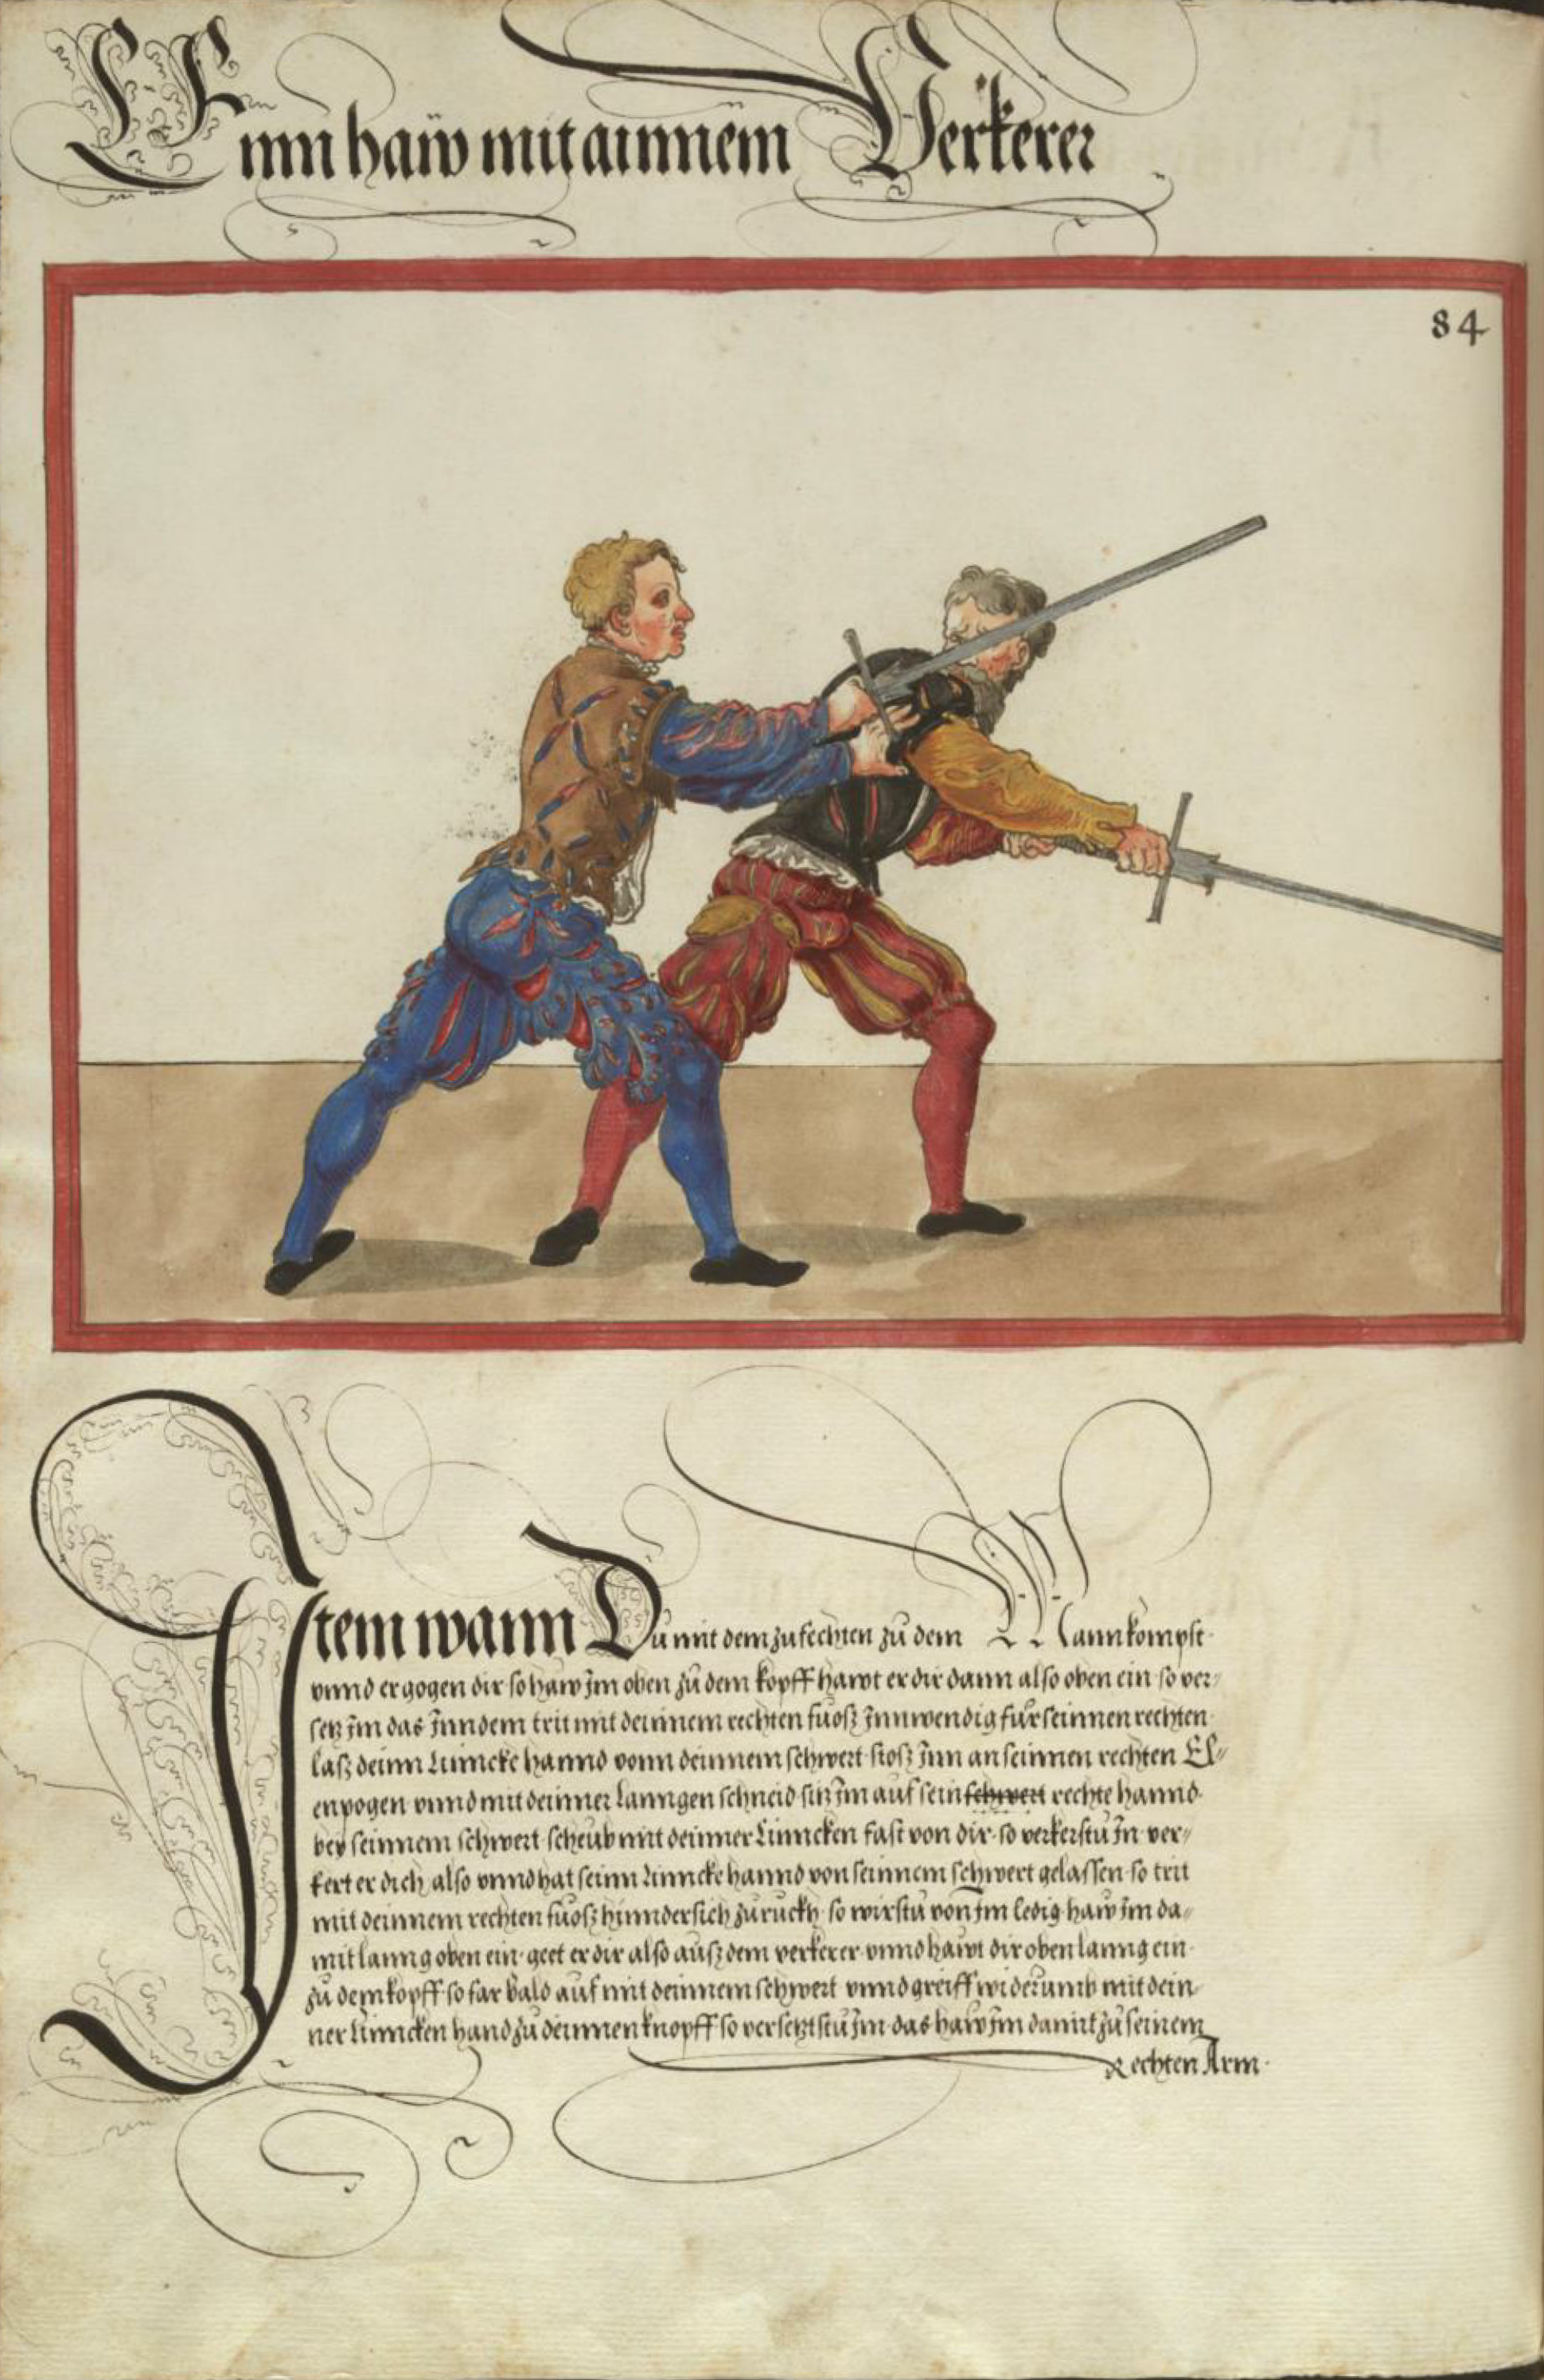 Einn haüw mit ainnem Verkerer
84
Item wann Du mit dem zufechten zu dem Mann kompst
vnnd er gogen dir so haw Im oben zu dem kopff hawt er dir dann also oben ein so ver-
setz Im das Inn dem trit mit deinnem rechten fuosz Innwendig für seinnen rechten
lasz deinn Linncke hannd vonn deinnem schwert stosz Inn an seinnen rechten El-
enpogen vnnd mit deinner lanngen schneid sitz Im auf sein schwert rechte hannd
bey seinnem schwert scheub mit deinner Linncken fast von dir so verkerstu In ver-
kert er dich also vnnd hat seinn Linncke hannd von seinnem schwert gelassen so trit
mit deinnem rechten fuosz hinndersich zuruckh so wirstu von Im ledig haw Im da-
mit lanng oben ein geet er dir also ausz dem verkerer vnnd hawt dir oben lanng ein
zu dem kopff so far bald auf mit deinnem schwert vnnd greiff widerumb mit dein-
ner Linncken hand zu deinnen knopff so versetztstu Im das haw Im damit zu seinem
Rechten Arm